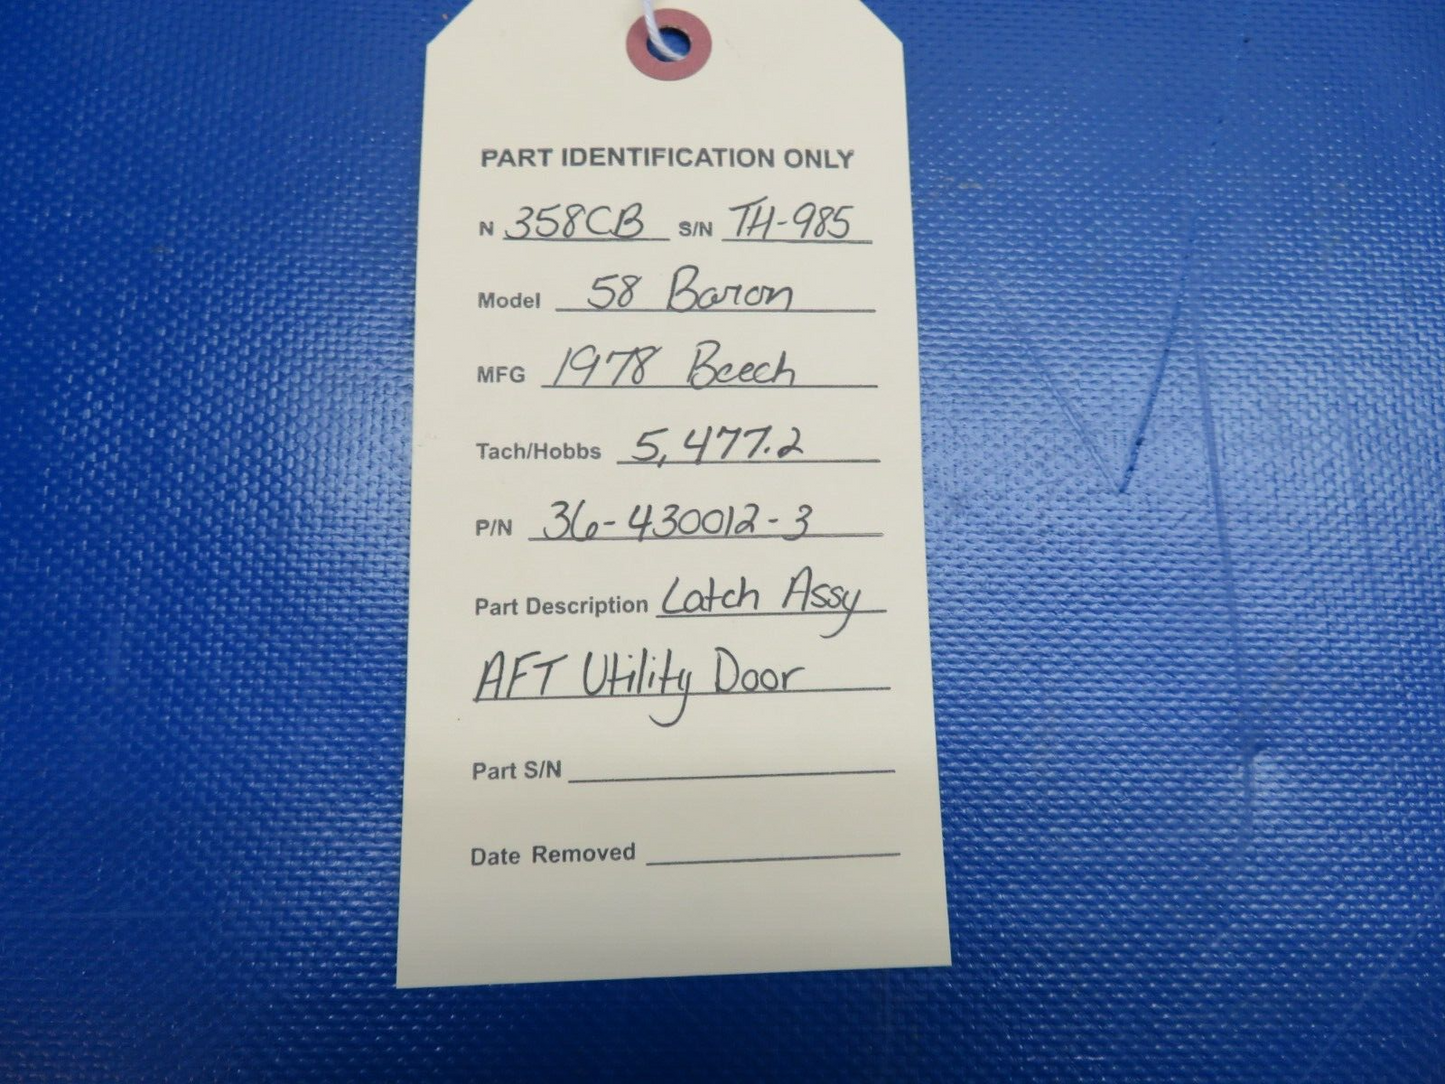 PART IDENTIFICATION ONLY
N 358CB S/N TH-985
Model 58 Baron
MFG 1978 Beech
Tach/Hobbs 5,477.2
P/N 36-430012-3
Part Description Latch Assy
AFT Utility Door
Part S/N
Date Removed